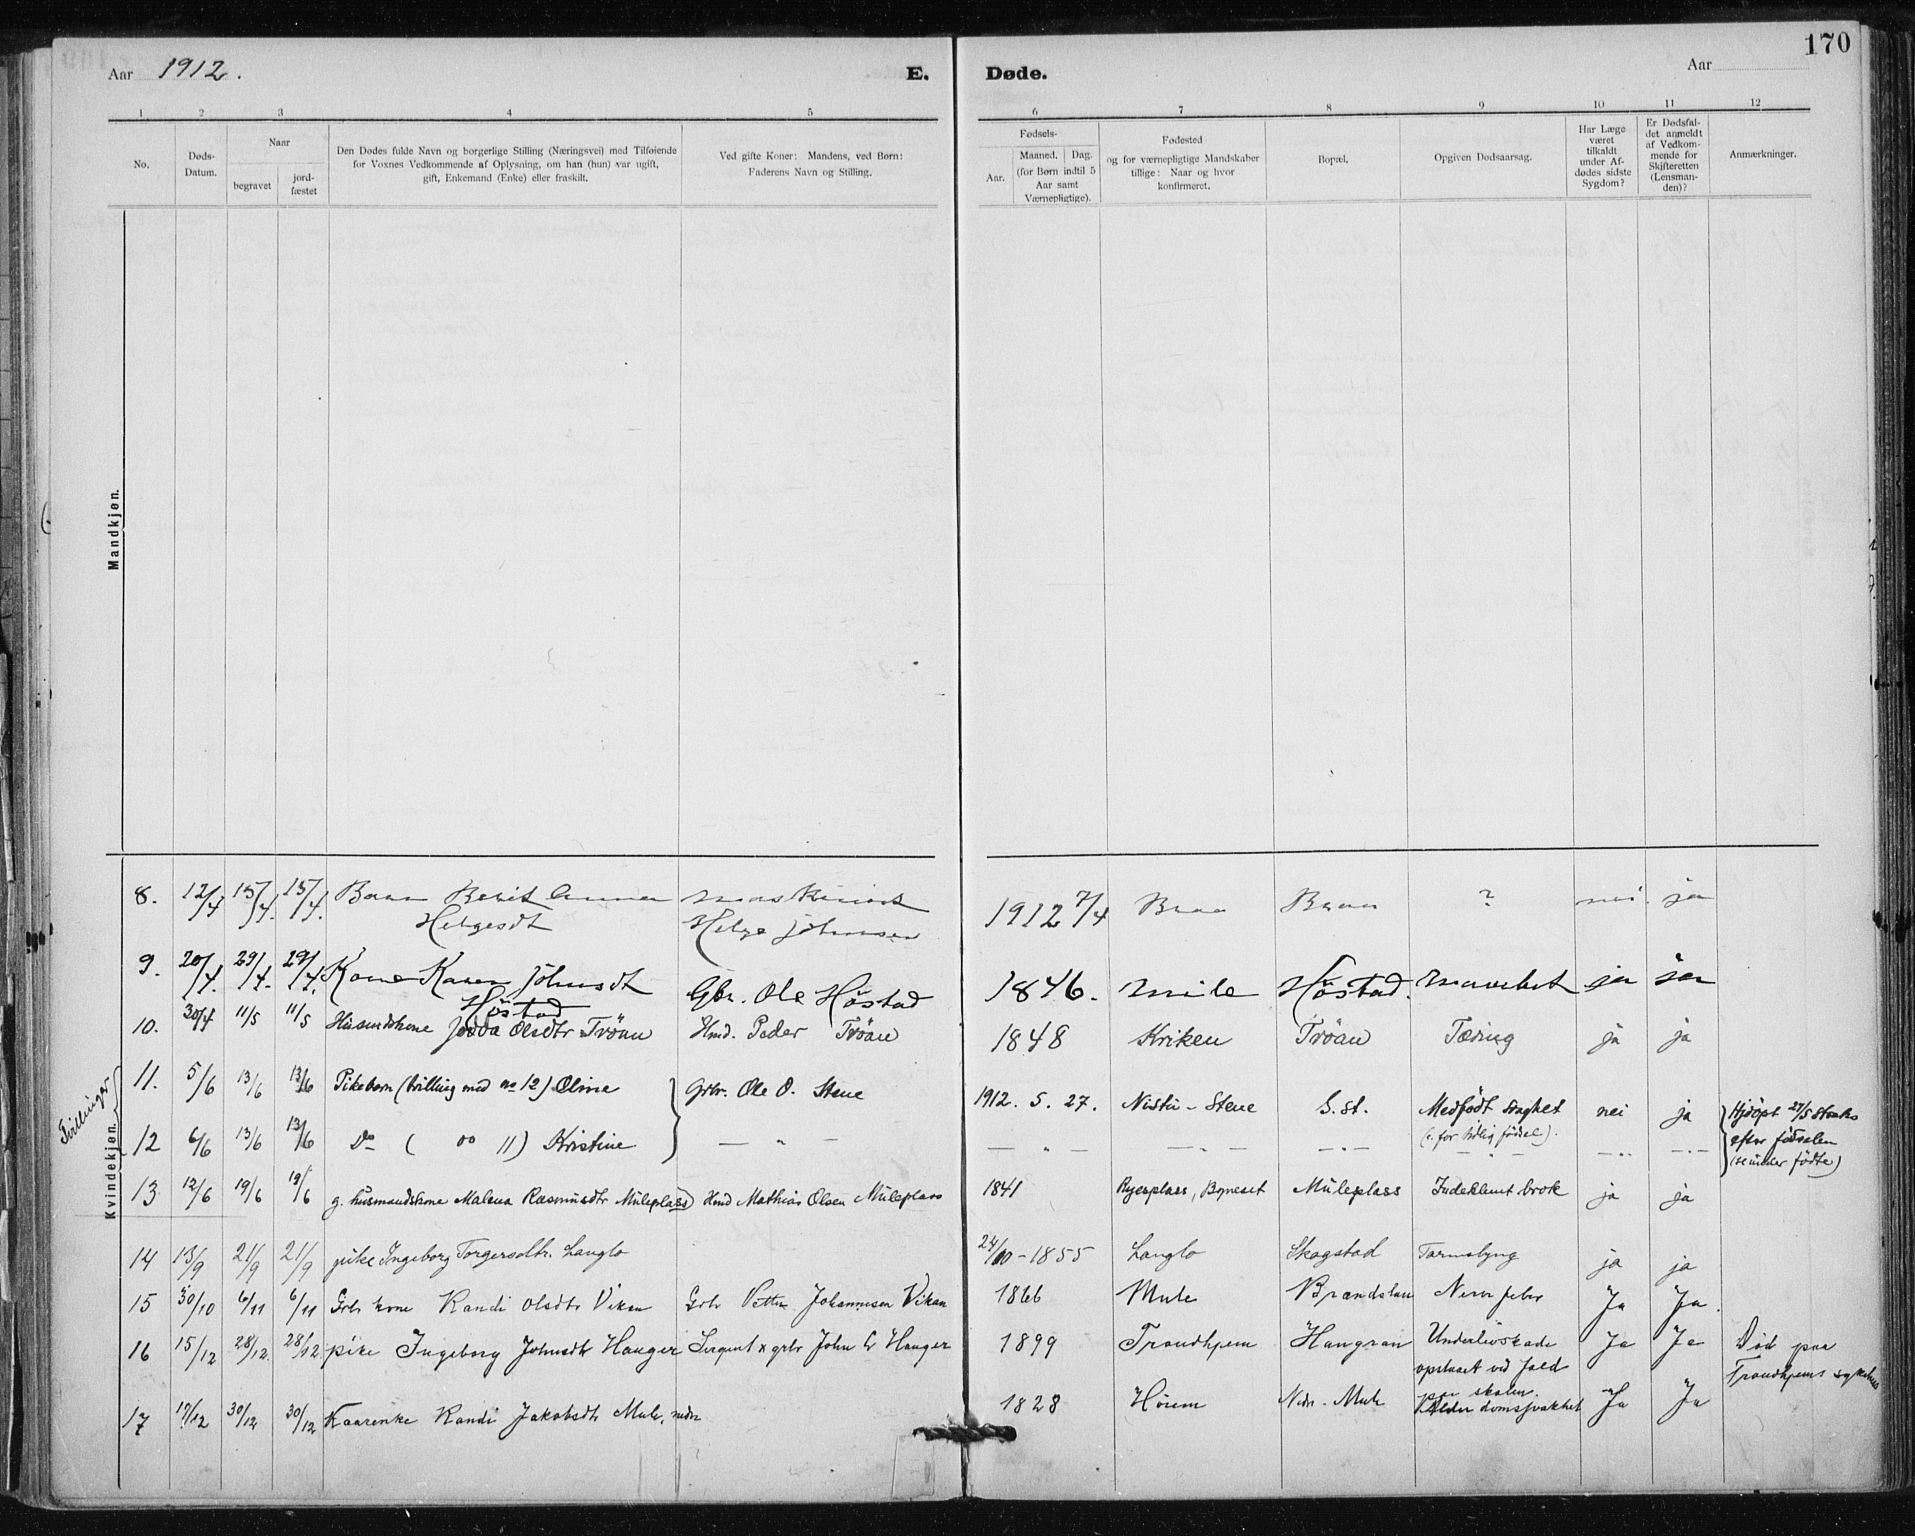 170
Aar 1912.
E.
Døde.
Aar
1 2 3 4 5 6 7 8 9 10 11 12
No.
Døds-
Datum.
Naar
begravet
jord-
fæstet
Den Dødes fulde Navn og borgerlige Stilling (Næringsvei) med Tilføiende
for Voxnes Vedkommende af Oplysning, om han (hun) var ugift,
gift, Enkemand (Enke) eller fraskilt.
Ved gifte Koner: Mandens, ved Børn:
Faderens Navn og Stilling.
Fødsels-
Aar.
Maaned. Dag.
(for Børn indtil 5
Aar samt
Værnepligtige).
Fødested
og for værnepligtige Mandskaber
tillige: Naar og hvor
konfirmeret.
Bopæl.
Opgiven Dødsaarsag.
Har Læge
været
tilkaldt
under Af-
dødes sidste
Sygdom?
Er Dødsfal-
det anmeldt
af Vedkom-
mende for
Skifteretten
(Lensman-
den)?
Anmærkninger.
Mandkjøn.
Kvindekjøn.
Tvillinger
8. 12/4 15/4. 15/4. Barn Berit Anna 1912 7/4 ? nei. ja
Helgesdt Helge Johnsen
9. 20/4. 29/4. 29/4. Kone Karen Johnsdt Gbr. Ole Höstad 1846. Mule Höstad. ja ja
Höstad
10. 30/4 11/5 11/5 Husmdskone Olsdtr Tröan Hmd. Peder Tröan 1848 Kriken Tröan Tæring ja ja
11. 5/6 13/6 13/6 Pikebarn (tvilling med no 12) Oline Grbr. Ole O. Stene 1912. 5. 27. Nistu - Stene S. st. Medfödt svaghet nei ja Hjdöpt 27/5 straks
(c. for tidlig födsel). efter födselen
12 6/6 13/6 13/6 Do ( " 11) Kristine — " — — " — — " — — " — — " — — " — — " —
13 12/6 19/6 19/6 g. husmandskone Malena Rasmusdtr Muleplass Hmd Mathias Olsen Muleplass 1841 Ryesplass, Byneset Muleplass Indeklemt brok ja ja
14 13/9 21/9 21/9 pike Ingeborg Torgersdtr. Langlo 24/10 - 1855 Langlo Skogstad Tarmslyng ja ja
15 30/10 6/11 6/11 Grbr kone Randi Olsdtr Vikan Grbr Petter Johannesen Vikan 1866 Mule Nervefeber Ja Ja.
16 15/12 28/12. 28/12 pike Ingeborg Johnsdtr Hauger Sergent x grbr John Hauger 1899 Trondhjem Hangran Underlivsskade Ja Ja Död paa
opstaaet ved fald Trondhjems sykehus
paa skolen.
17 17/12 30/12 30/12 Kaarenke Randi Jakobsdtr Mule, nedre 1828 Höiem Nedr. Mule Alderdomssvakhet Ja Ja